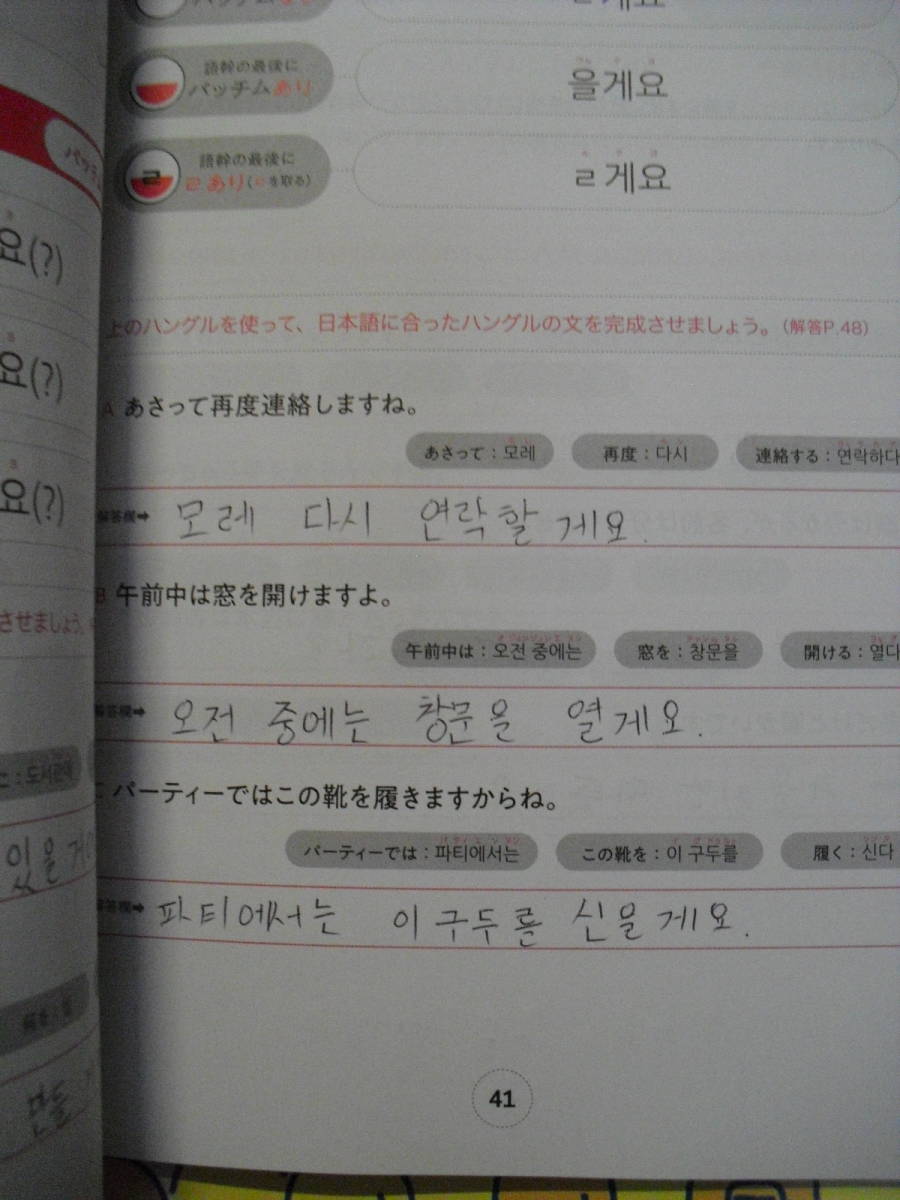 語幹の最後に
パッチムあり
을게요
語幹の最後に
ㄹあり(ㄹを取る)
ㄹ게요
上のハングルを使って、日本語に合ったハングルの文を完成させましょう。(解答P.48)
요(?)
요(?)
요(?)
させましょう。
A あさって再度連絡しますね。
あさって:모레 再度:다시 連絡する:연락하다
解答欄➡ 모레 다시 연락할게요.
B 午前中は窓を開けますよ。
午前中は:오전 중에는 窓を:창문을 開ける:열다
解答欄➡ 오전 중에는 창문을 열게요.
C パーティーではこの靴を履きますからね。
パーティーでは:파티에서는 この靴を:이 구두를 履く:신다
解答欄➡ 파티에서는 이 구두를 신을게요.
있을게
만들
41